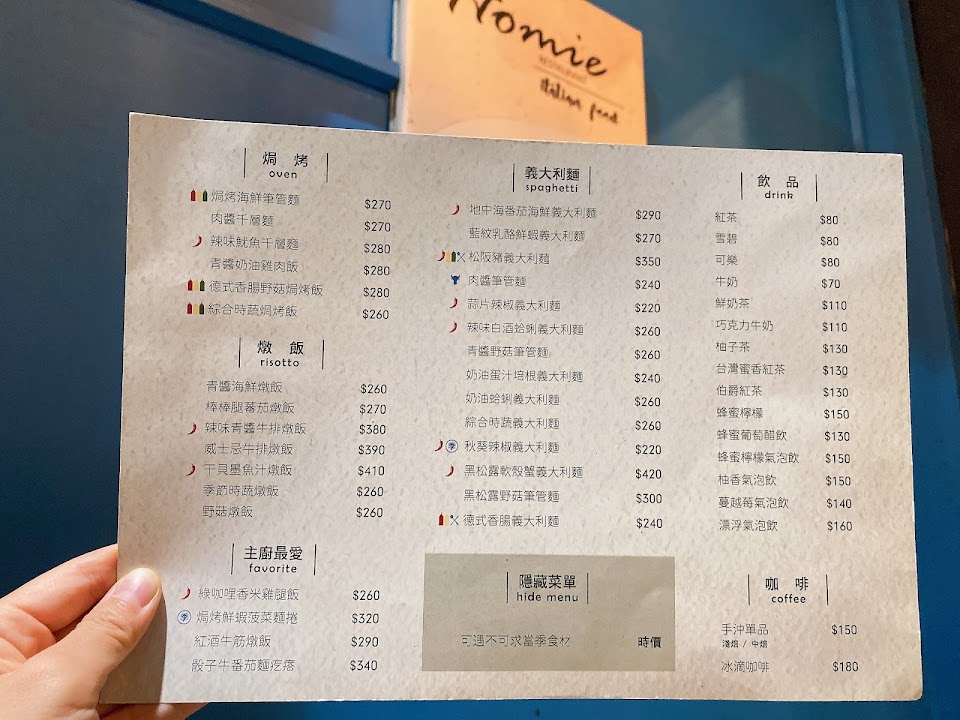 Homie
RESTAURANT
italian food
焗 烤
oven
焗烤海鮮筆管麵 $270
肉醬千層麵 $270
辣味魷魚千層麵 $280
青醬奶油雞肉飯 $280
德式香腸野菇焗烤飯 $280
綜合時蔬焗烤飯 $260
燉 飯
risotto
青醬海鮮燉飯 $260
棒棒腿蕃茄燉飯 $270
辣味青醬牛排燉飯 $380
威士忌牛排燉飯 $390
干貝墨魚汁燉飯 $410
季節時蔬燉飯 $260
野菇燉飯 $260
主廚最愛
favorite
綠咖哩香米雞腿飯 $260
季 焗烤鮮蝦菠菜麵捲 $320
紅酒牛筋燉飯 $290
骰子牛番茄麵疙瘩 $340
義大利麵
spaghetti
地中海番茄海鮮義大利麵 $290
藍紋乳酪鮮蝦義大利麵 $270
松阪豬義大利麵 $350
肉醬筆管麵 $240
蒜片辣椒義大利麵 $220
辣味白酒蛤蜊義大利麵 $260
青醬野菇筆管麵 $260
奶油蛋汁培根義大利麵 $240
奶油蛤蜊義大利麵 $260
綜合時蔬義大利麵 $260
季 秋葵辣椒義大利麵 $220
黑松露軟殼蟹義大利麵 $420
黑松露野菇筆管麵 $300
德式香腸義大利麵 $240
隱藏菜單
hide menu
可遇不可求當季食材 時價
飲 品
drink
紅茶 $80
雪碧 $80
可樂 $80
牛奶 $70
鮮奶茶 $110
巧克力牛奶 $110
柚子茶 $130
台灣蜜香紅茶 $130
伯爵紅茶 $130
蜂蜜檸檬 $150
蜂蜜葡萄醋飲 $130
蜂蜜檸檬氣泡飲 $150
柚香氣泡飲 $150
蔓越莓氣泡飲 $140
漂浮氣泡飲 $160
咖 啡
coffee
手沖單品 $150
淺焙 / 中焙
冰滴咖啡 $180